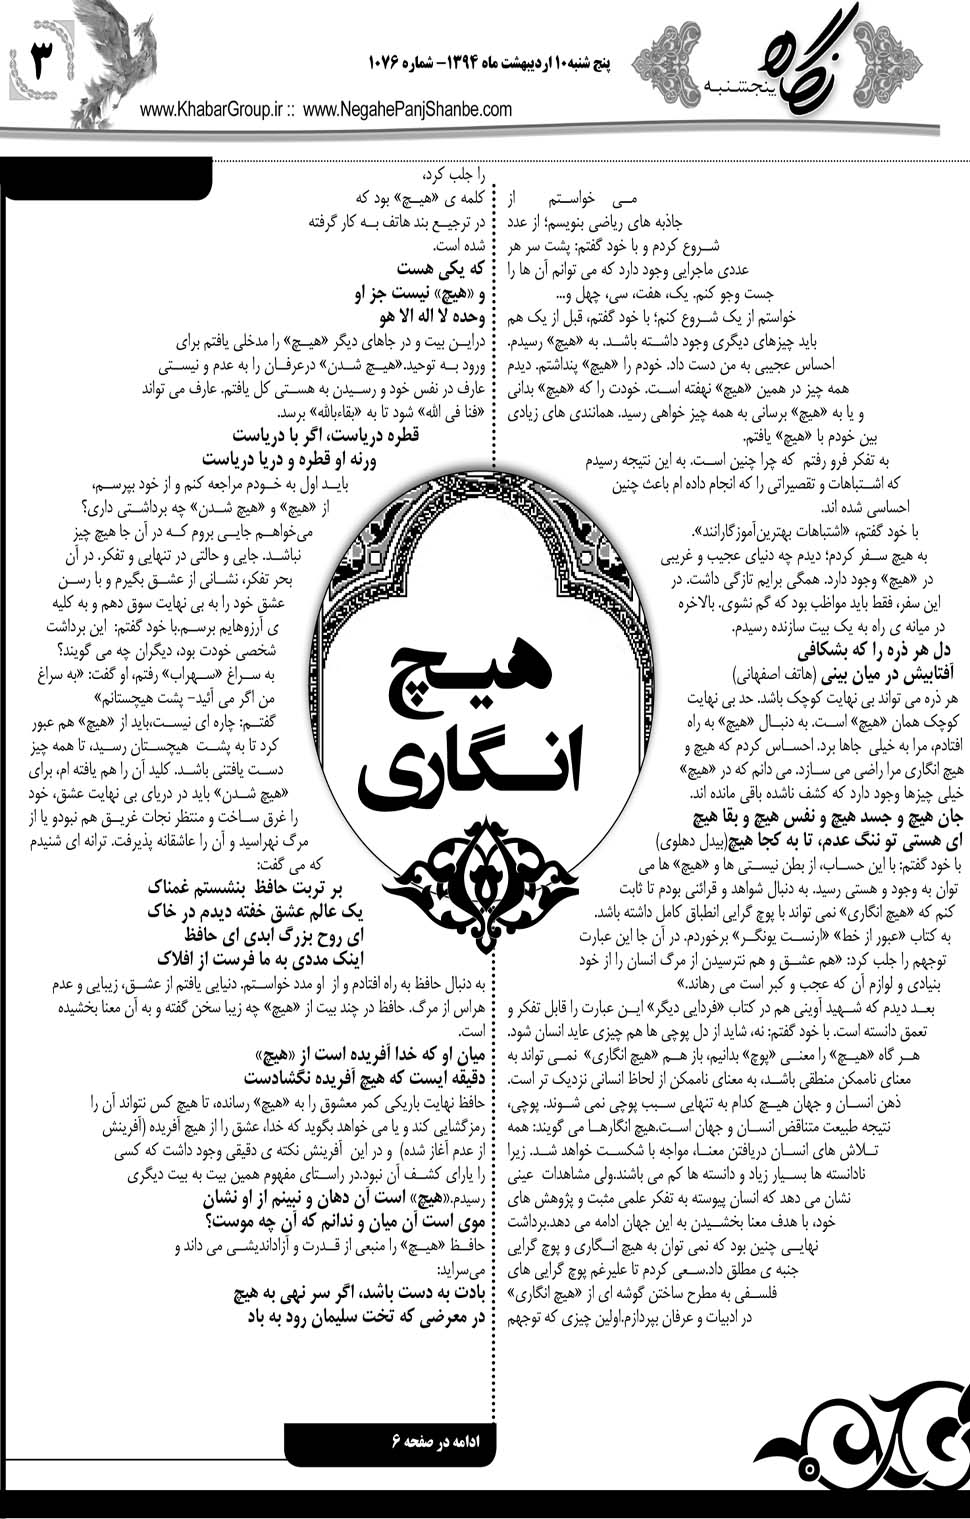 ۳
پنج شنبه۱۰ اردیبهشت ماه ۱۳۹۴- شماره ۱۰۷۶
www.KhabarGroup.ir :: www.NegahePanjShanbe.com
نگاه
پنجشنبه
می خواستم از
جاذبه های ریاضی بنویسم؛ از عدد
شروع کردم و با خود گفتم: پشت سر هر
عددی ماجرایی وجود دارد که می توانم آن ها را
جست وجو کنم. یک، هفت، سی، چهل و...
خواستم از یک شروع کنم؛ با خود گفتم، قبل از یک هم
باید چیزهای دیگری وجود داشته باشد. به «هیچ» رسیدم.
احساس عجیبی به من دست داد. خودم را «هیچ» پنداشتم. دیدم
همه چیز در همین «هیچ» نهفته است. خودت را که «هیچ» بدانی
و یا به «هیچ» برسانی به همه چیز خواهی رسید. همانندی های زیادی
بین خودم با «هیچ» یافتم.
به تفکر فرو رفتم که چرا چنین است. به این نتیجه رسیدم
که اشتباهات و تقصیراتی را که انجام داده ام باعث چنین
احساسی شده اند.
با خود گفتم، «اشتباهات بهترین‌آموزگارانند».
به هیچ سفر کردم؛ دیدم چه دنیای عجیب و غریبی
در «هیچ» وجود دارد. همگی برایم تازگی داشت. در
این سفر، فقط باید مواظب بود که گم نشوی. بالاخره
در میانه ی راه به یک بیت سازنده رسیدم.
دل هر ذره را که بشکافی
آفتابیش در میان بینی (هاتف اصفهانی)
هر ذره می تواند بی نهایت کوچک باشد. حد بی نهایت
کوچک همان «هیچ» است. به دنبال «هیچ» به راه
افتادم، مرا به خیلی جاها برد. احساس کردم که هیچ و
هیچ انگاری مرا راضی می سازد. می دانم که در «هیچ»
خیلی چیزها وجود دارد که کشف ناشده باقی مانده اند.
جان هیچ و جسد هیچ و نفس هیچ و بقا هیچ
ای هستی تو ننگ عدم، تا به کجا هیچ(بیدل دهلوی)
با خود گفتم: با این حساب، از بطن نیستی ها و «هیچ» ها می
توان به وجود و هستی رسید. به دنبال شواهد و قرائنی بودم تا ثابت
کنم که «هیچ انگاری» نمی تواند با پوچ گرایی انطباق کامل داشته باشد.
به کتاب «عبور از خط» «ارنست یونگر» برخوردم. در آن جا این عبارت
توجهم را جلب کرد: «هم عشق و هم نترسیدن از مرگ انسان را از خود
بنیادی و لوازم آن که عجب و کبر است می رهاند.»
بعد دیدم که شهید آوینی هم در کتاب «فردایی دیگر» این عبارت را قابل تفکر و
تعمق دانسته است. با خود گفتم: نه، شاید از دل پوچی ها هم چیزی عاید انسان شود.
هر گاه «هیچ» را معنی «پوچ» بدانیم، باز هم «هیچ انگاری» نمی تواند به
معنای ناممکن منطقی باشد، به معنای ناممکن از لحاظ انسانی نزدیک تر است.
ذهن انسان و جهان هیچ کدام به تنهایی سبب پوچی نمی شوند. پوچی،
نتیجه طبیعت متناقض انسان و جهان است.هیچ انگارها می گویند: همه
تلاش های انسان دریافتن معنا، مواجه با شکست خواهد شد. زیرا
نادانسته ها بسیار زیاد و دانسته ها کم می باشند.ولی مشاهدات عینی
نشان می دهد که انسان پیوسته به تفکر علمی مثبت و پژوهش های
خود، با هدف معنا بخشیدن به این جهان ادامه می دهد.برداشت
نهایی چنین بود که نمی توان به هیچ انگاری و پوچ گرایی
جنبه ی مطلق داد.سعی کردم تا علیرغم پوچ گرایی های
فلسفی به مطرح ساختن گوشه ای از «هیچ انگاری»
در ادبیات و عرفان بپردازم.اولین چیزی که توجهم
را جلب کرد،
کلمه ی «هیچ» بود که
در ترجیع بند هاتف به کار گرفته
شده است.
که یکی هست
و «هیچ» نیست جز او
وحده لا اله الا هو
دراین بیت و در جاهای دیگر «هیچ» را مدخلی یافتم برای
ورود به توحید.«هیچ شدن» درعرفان را به عدم و نیستی
عارف در نفس خود و رسیدن به هستی کل یافتم. عارف می تواند
«فنا فی الله» شود تا به «بقاءبالله» برسد.
قطره دریاست، اگر با دریاست
ورنه او قطره و دریا دریاست
باید اول به خودم مراجعه کنم و از خود بپرسم،
از «هیچ» و «هیچ شدن» چه برداشتی داری؟
می‌خواهم جایی بروم که در آن جا هیچ چیز
نباشد. جایی و حالتی در تنهایی و تفکر. در آن
بحر تفکر، نشانی از عشق بگیرم و با رسن
عشق خود را به بی نهایت سوق دهم و به کلیه
ی آرزوهایم برسم.با خود گفتم: این برداشت
شخصی خودت بود، دیگران چه می گویند؟
به سراغ «سهراب» رفتم، او گفت: «به سراغ
من اگر می آئید- پشت هیچستانم»
گفتم: چاره ای نیست،باید از «هیچ» هم عبور
کرد تا به پشت هیچستان رسید، تا همه چیز
دست یافتنی باشد. کلید آن را هم یافته ام، برای
«هیچ شدن» باید در دریای بی نهایت عشق، خود
را غرق ساخت و منتظر نجات غریق هم نبودو یا از
مرگ نهراسید و آن را عاشقانه پذیرفت. ترانه ای شنیدم
که می گفت:
بر تربت حافظ بنشستم غمناک
یک عالم عشق خفته دیدم در خاک
ای روح بزرگ ابدی ای حافظ
اینک مددی به ما فرست از افلاک
به دنبال حافظ به راه افتادم و از او مدد خواستم. دنیایی یافتم از عشق، زیبایی و عدم
هراس از مرگ. حافظ در چند بیت از «هیچ» چه زیبا سخن گفته و به آن معنا بخشیده
است.
میان او که خدا آفریده است از «هیچ»
دقیقه ایست که هیچ آفریده نگشادست
حافظ نهایت باریکی کمر معشوق را به «هیچ» رسانده، تا هیچ کس نتواند آن را
رمزگشایی کند و یا می خواهد بگوید که خدا، عشق را از هیچ آفریده (آفرینش
از عدم آغاز شده) و در این آفرینش نکته ی دقیقی وجود داشت که کسی
را یارای کشف آن نبود.در راستای مفهوم همین بیت به بیت دیگری
رسیدم.«هیچ» است آن دهان و نبینم از او نشان
موی است آن میان و ندانم که آن چه موست؟
حافظ «هیچ» را منبعی از قدرت و آزاداندیشی می داند و
می‌سراید:
بادت به دست باشد، اگر سر نهی به هیچ
در معرضی که تخت سلیمان رود به باد
هیچ
انگاری
ادامه در صفحه ۶